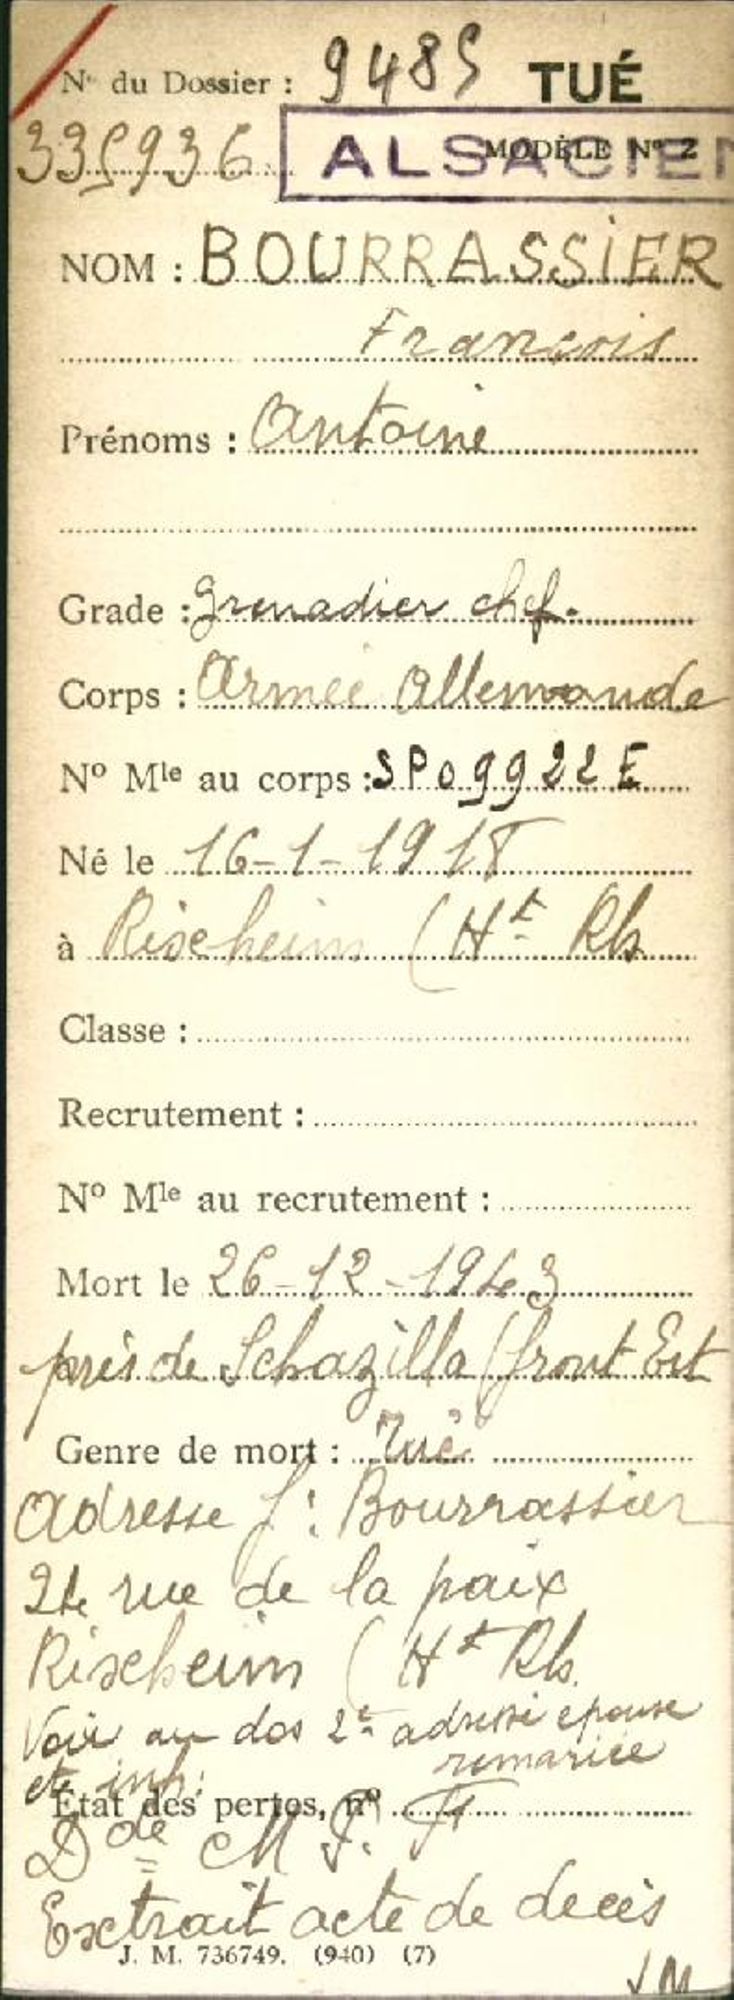 N° du Dossier : 9485 TUÉ
335936 ALSACIEN MODÈLE N° 2
NOM : BOURRASSIER
François
Prénoms : Antoine
Grade : grenadier chef.
Corps : Armée Allemande
N° Mle au corps : SP 09922 E
Né le 16-1-1918
à Rixheim (Ht Rh
Classe :
Recrutement :
N° Mle au recrutement :
Mort le 26-12-1943
près de Schazilla (front Est
Genre de mort : Tué
Adresse f: Bourrassier
24 rue de la paix
Rixheim (Ht Rh.
Voir au dos 2e adresse épouse
remariée
et inh:
État des pertes, n°
Dde M P. F
Extrait acte de décès
J. M. 736749. (940) (7)
JM